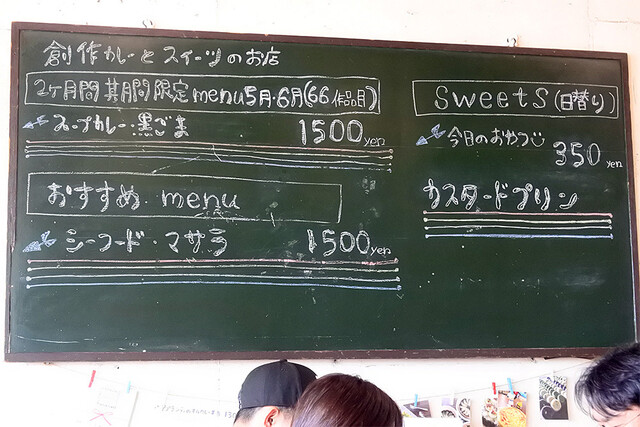 創作カレーとスイーツのお店
2ヶ月間期間限定menu5月・6月(66作品目)
スープカレー・黒ごま 1500yen
おすすめ・menu
シーフード・マサラ 1500yen
sweets(日替り)
今日のおやつ 350yen
カスタードプリン